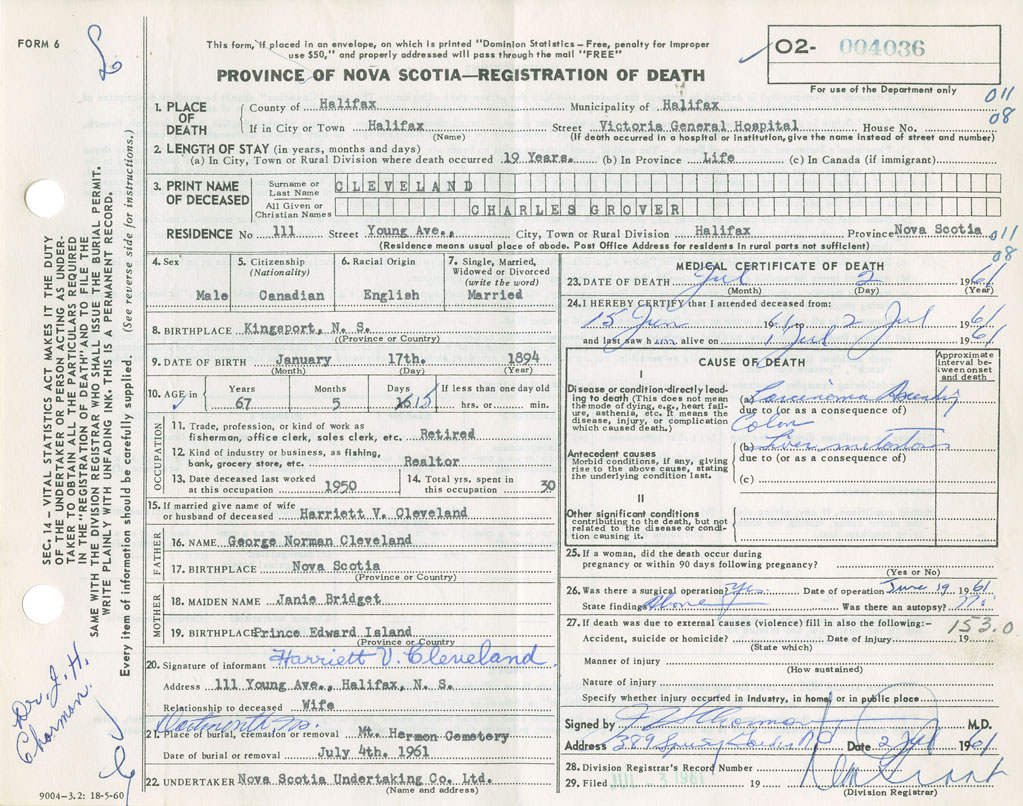 FORM 6
This form, if placed in an envelope, on which is printed "Dominion Statistics – Free, penalty for improper
use $50," and properly addressed will pass through the mail "FREE"
PROVINCE OF NOVA SCOTIA—REGISTRATION OF DEATH
02- 004036
For use of the Department only
011
08
1. PLACE OF DEATH
County of Halifax Municipality of Halifax
If in City or Town Halifax Street Victoria General Hospital House No.
(Name) (If death occurred in a hospital or institution, give the name instead of street and number)
2. LENGTH OF STAY (in years, months and days)
(a) In City, Town or Rural Division where death occurred 19 Years. (b) In Province Life (c) In Canada (if immigrant)
3. PRINT NAME OF DECEASED
Surname or Last Name CLEVELAND
All Given or Christian Names CHARLES GROVER
RESIDENCE No 111 Street Young Ave., City, Town or Rural Division Halifax Province Nova Scotia
011
08
(Residence means usual place of abode. Post Office Address for residents in rural parts not sufficient)
4. Sex Male
5. Citizenship (Nationality) Canadian
6. Racial Origin English
7. Single, Married, Widowed or Divorced (write the word) Married
8. BIRTHPLACE Kingsport, N. S.
(Province or Country)
9. DATE OF BIRTH January 17th. 1894
(Month) (Day) (Year)
10. AGE in Years 67 Months 5 Days 15 If less than one day old hrs. or min.
OCCUPATION
11. Trade, profession, or kind of work as
fisherman, office clerk, sales clerk, etc. Retired
12. Kind of industry or business, as fishing,
bank, grocery store, etc. Realtor
13. Date deceased last worked at this occupation 1950
14. Total yrs. spent in this occupation 30
15. If married give name of wife
or husband of deceased Harriett V. Cleveland
FATHER
16. NAME George Norman Cleveland
17. BIRTHPLACE Nova Scotia
(Province or Country)
MOTHER
18. MAIDEN NAME Janie Bridget
19. BIRTHPLACE Prince Edward Island
(Province or Country)
20. Signature of informant Harriett V. Cleveland
Address 111 Young Ave., Halifax, N. S.
Relationship to deceased Wife
Dartmouth
21. Place of burial, cremation or removal Mt. Hermon Cemetery
Date of burial or removal July 4th. 1961
22. UNDERTAKER Nova Scotia Undertaking Co. Ltd.
(Name and address)
MEDICAL CERTIFICATE OF DEATH
23. DATE OF DEATH Jul 2 1961
(Month) (Day) (Year)
24. I HEREBY CERTIFY that I attended deceased from:
15 Jun 1961 to 2 Jul 1961
and last saw him alive on 1 Jul 1961
CAUSE OF DEATH
Approximate interval between onset and death
I
Disease or condition directly leading to death (This does not mean the mode of dying, e.g., heart failure, asthenia, etc. It means the disease, injury, or complication which caused death.)
(a) Carcinoma
due to (or as a consequence of)
Colon
Antecedent causes
Morbid conditions, if any, giving rise to the above cause, stating the underlying condition last.
(b) Liver
due to (or as a consequence of)
(c)
II
Other significant conditions
contributing to the death, but not related to the disease or condition causing it.
25. If a woman, did the death occur during
pregnancy or within 90 days following pregnancy?
(Yes or No)
26. Was there a surgical operation? Yes Date of operation June 19 1961
State findings Above Was there an autopsy? No
27. If death was due to external causes (violence) fill in also the following:–
153.0
Accident, suicide or homicide? Date of injury 19
(State which)
Manner of injury
(How sustained)
Nature of injury
Specify whether injury occurred in Industry, in home, or in public place
Signed by M.D.
Address 389 Date 2 Jul 1961
28. Division Registrar's Record Number
29. Filed 19
(Division Registrar)
SEC. 14 – VITAL STATISTICS ACT MAKES IT THE DUTY
OF THE UNDERTAKER OR PERSON ACTING AS UNDER-
TAKER TO OBTAIN ALL THE PARTICULARS REQUIRED
IN THE "REGISTRATION OF DEATH" AND TO FILE THE
SAME WITH THE DIVISION REGISTRAR WHO SHALL ISSUE THE BURIAL PERMIT.
WRITE PLAINLY WITH UNFADING INK. THIS IS A PERMANENT RECORD.
Every item of information should be carefully supplied. (See reverse side for instructions.)
Dr. J. H.
Charman.
9004-3.2: 18-5-60